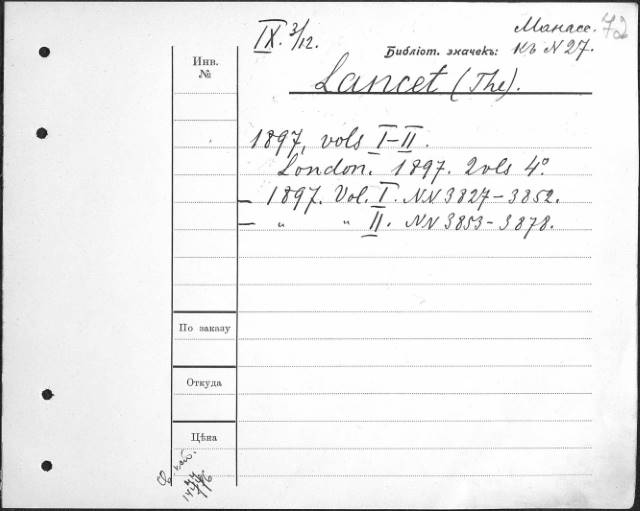 IX. 3/12.
Манасс. 72
Библіот. значекъ: къ N 27.
Инв. №
Lancet (The).
1897, vols I-II.
London. 1897. 2 vls 4º
— 1897. Vol. I. NN 3827-3852.
— " " II. NN 3853-3878.
По заказу
Откуда
Цѣна